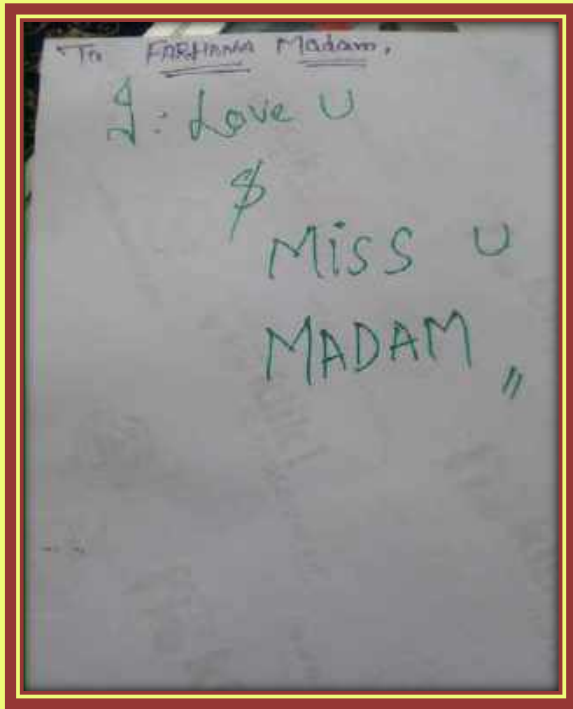 To FARHANA Madam,
I: Love U
$
MISS U
MADAM „